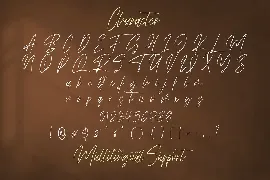 Character
A B C D E F G H I J K L M
N O P Q R S T U V W X Y Z
a b c d e f g h i j k l m
n o p q r s t u v w x y z
0123456789
Multilingual Support